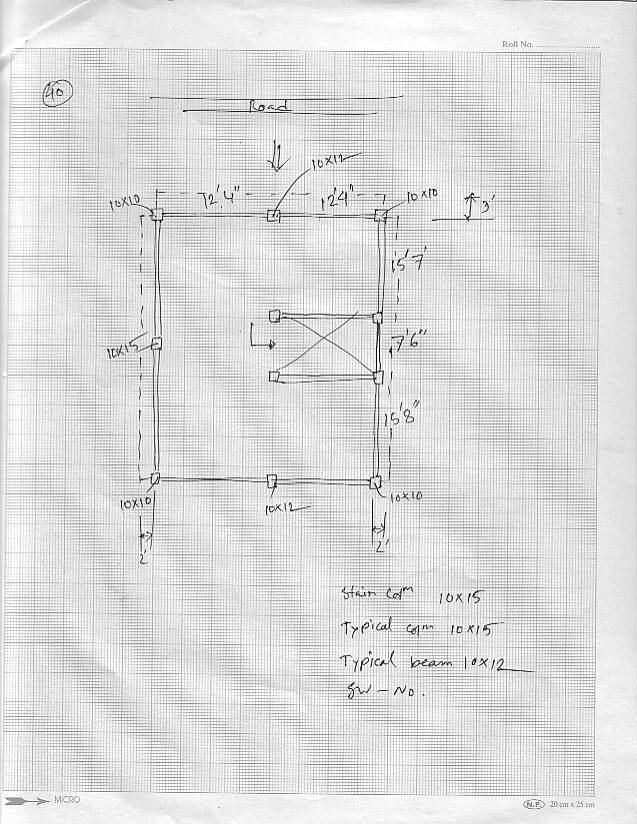 Roll No.
40
Road
10X12
10X10
12'.4"
12'4"
10X10
3'
15'7'
10X15
7'6"
15'8"
10X10
10X12
10X10
2'
2'
Stair Colm 10X15
Typical colm 10X15
Typical beam 10X12
SW - NO.
MICRO
N.P. 20 cm x 25 cm